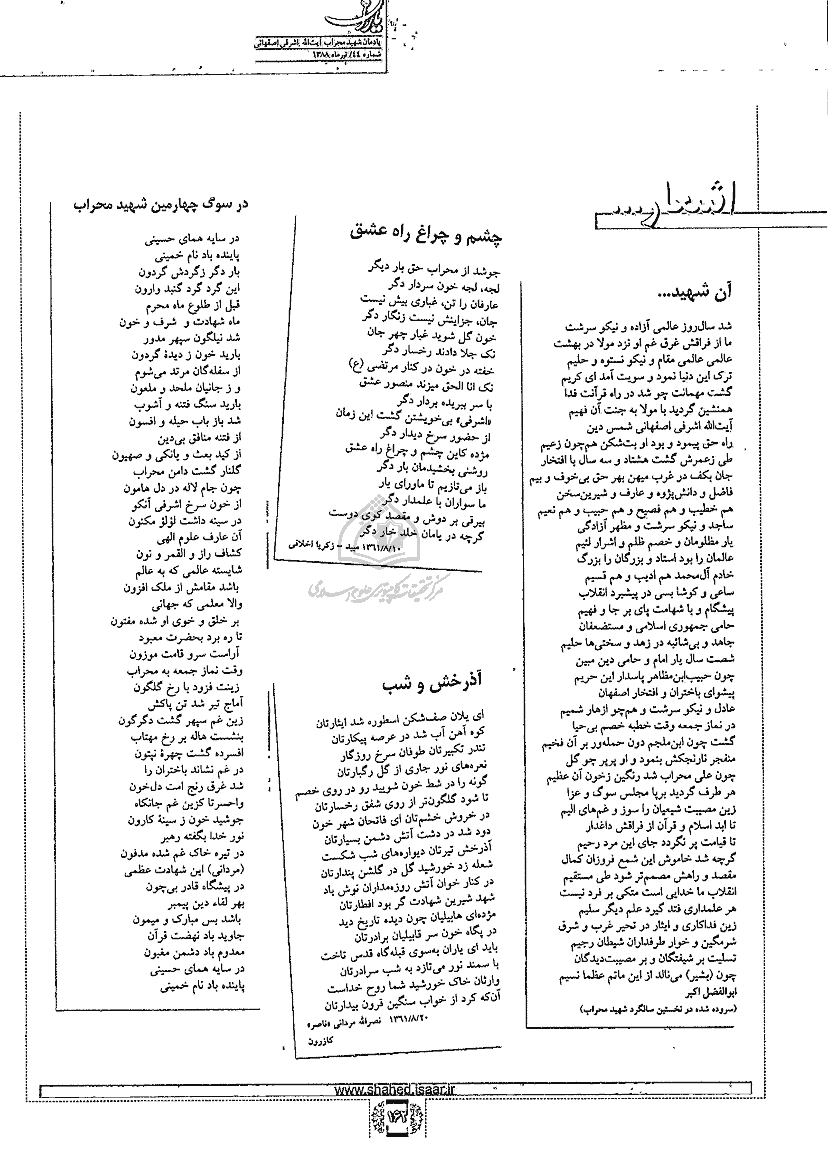 یادمان شهید محراب آیت‌الله اشرفی اصفهانی
شماره ٤٤/ تیر ماه ۱۳۸۸
اشعار
آن شهید...
شد سال‌روز عالمی آزاده و نیکو سرشت
ما از فراقش غرق غم او نزد مولا در بهشت
عالمی عالمی مقام و نیکو نستوه و حلیم
ترک این دنیا نمود و سویت آمد ای کریم
گشت مهمانت چو شد در راه قرآنت فدا
همنشین گردید با مولا به جنت آن فهیم
آیت‌الله اشرفی اصفهانی شمس دین
راه حق پیمود و بود او بت‌شکن هم‌چون زعیم
طی زعمرش گشت هشتاد و سه سال با افتخار
جان بکف در غرب میهن بهر حق بی‌خوف و بیم
فاضل و دانش‌پژوه و عارف و شیرین‌سخن
هم خطیب و هم فصیح و هم حبیب و هم نعیم
ساجد و نیکو سرشت و مظهر آزادگی
یار مظلومان و خصم ظلم و اشرار لئیم
عالمان را بود استاد و بزرگان را بزرگ
خادم آل‌محمد هم ادیب و هم قسیم
ساعی و کوشا بسی در پیشبرد انقلاب
پیشگام و با شهامت پای بر جا و فهیم
حامی جمهوری اسلامی و مستضعفان
جاهد و بی‌شائبه در زهد و سختی‌ها حلیم
شصت سال یار امام و حامی دین مبین
چون حبیب‌ابن‌مظاهر پاسدار این حریم
پیشوای باختران و افتخار اصفهان
عادل و نیکو سرشت و هم‌چو ازهار شمیم
در نماز جمعه وقت خطبه خصم بی‌حیا
گشت چون ابن‌ملجم دون حمله‌ور بر آن فخیم
منفجر نارنجکش بنمود و او پرپر چو گل
چون علی محراب شد رنگین زخون آن عظیم
هر طرف گردید برپا مجلس سوگ و عزا
زین مصیبت شیعیان را سوز و غم‌های الیم
تا ابد اسلام و قرآن از فراقش داغدار
تا قیامت پر نگردد جای این مرد رحیم
گرچه شد خاموش این شمع فروزان کمال
مقصد و راهش مصمم‌تر شود طی مستقیم
انقلاب ما خدایی است متکی بر فرد نیست
هر علمداری فتد گیرد علم دیگر سلیم
زین فداکاری و ایثار در تحیر غرب و شرق
شرمگین و خوار طرفداران شیطان رجیم
تسلیت بر شیفتگان و بر مصیبت‌دیدگان
چون (بشیر) می‌نالد از این ماتم عظما نسیم
ابوالفضل اکبر
(سروده شده در نخستین سالگرد شهید محراب)
چشم و چراغ راه عشق
جوشد از محراب حق بار دیگر
لجه، لجه خون سردار دگر
عارفان را تن، غباری بیش نیست
جان، جزاینش نیست زنگار دگر
خون گل شوید غبار چهر جان
نک جلا دادند رخسار دگر
خفته در خون در کنار مرتضی (ع)
نک انا الحق میزند منصور عشق
با سر ببریده بردار دگر
«اشرفی» بی‌خویشتن گشت این زمان
از حضور سرخ دیدار دگر
مژده کاین چشم و چراغ راه عشق
روشنی بخشیدمان بار دگر
باز می‌تازیم تا ماورای یار
ما سواران با علمدار دگر
بیرقی بر دوش و مقصد کوی دوست
گرچه در پامان خلد خار دگر
۱۳۶۱/۸/۱۰ میبد – زکریا اخلاقی
مرکز تحقیقات کامپیوتری علوم اسلامی
آذرخش و شب
ای یلان صف‌شکن اسطوره شد ایثارتان
کوه آهن آب شد در عرصه پیکارتان
تندر تکبیرتان طوفان سرخ روزگار
نعره‌های نور جاری از گل رگبارتان
گونه را در شط خون شویید رو در روی خصم
تا شود گلگون‌تر از روی شفق رخسارتان
در خروش خشم‌تان ای فاتحان شهر خون
دود شد در دشت آتش دشمن بسیارتان
آذرخش تیرتان دیواره‌های شب شکست
شعله زد خورشید گل در گلشن پندارتان
در کنار خوان آتش روزه‌مداران نوش باد
شهد شیرین شهادت گر بود افطارتان
مژده‌ای هابیلیان چون دیده تاریخ دید
در پگاه خون سر قابیلیان بردارتان
باید ای یاران به‌سوی قبله‌گاه قدس تاخت
با سمند نور می‌تازد به شب سردارتان
وارثان خاک خورشید شما روح خداست
آن‌که کرد از خواب سنگین قرون بیدارتان
۱۳۶۱/۸/۲۰ نصرالله مردانی «ناصر»
کازرون
در سوگ چهارمین شهید محراب
در سایه همای حسینی
پاینده باد نام خمینی
بار دگر زگردش گردون
این گرد گرد گنبد وارون
قبل از طلوع ماه محرم
ماه شهادت و شرف و خون
شد نیلگون سپهر مدور
بارید خون ز دیدهٔ گردون
از سفله‌گان مرتد می‌شوم
و ز جانیان ملحد و ملعون
بارید سنگ فتنه و آشوب
شد باز باب حیله و افسون
از فتنه منافق بی‌دین
از کید بعث و یانکی و صهیون
گلنار گشت دامن محراب
چون جام لاله در دل هامون
از خون سرخ اشرفی آنکو
در سینه داشت لؤلؤ مکنون
آن عارف علوم الهی
کشاف راز و القمر و نون
شایسته عالمی که به عالم
باشد مقامش از ملک افزون
والا معلمی که جهانی
بر خلق و خوی او شده مفتون
تا ره برد بحضرت معبود
آراست سرو قامت موزون
وقت نماز جمعه به محراب
زینت فزود با رخ گلگون
آماج تیر شد تن پاکش
زین غم سپهر گشت دگرگون
بنشست هاله بر رخ مهتاب
افسرده گشت چهرهٔ نپتون
در غم نشاند باختران را
شد غرق رنج امت دل‌خون
واحسرتا کزین غم جانکاه
جوشید خون ز سینهٔ کارون
نور خدا بگفته رهبر
در تیره خاک غم شده مدفون
(مردانی) این شهادت عظمی
در پیشگاه قادر بی‌چون
بهر لقاء دین پیمبر
باشد بس مبارک و میمون
جاوید باد نهضت قرآن
معدوم باد دشمن مغبون
در سایه همای حسینی
پاینده باد نام خمینی
www.shahed.isaar.ir
۱۶۲